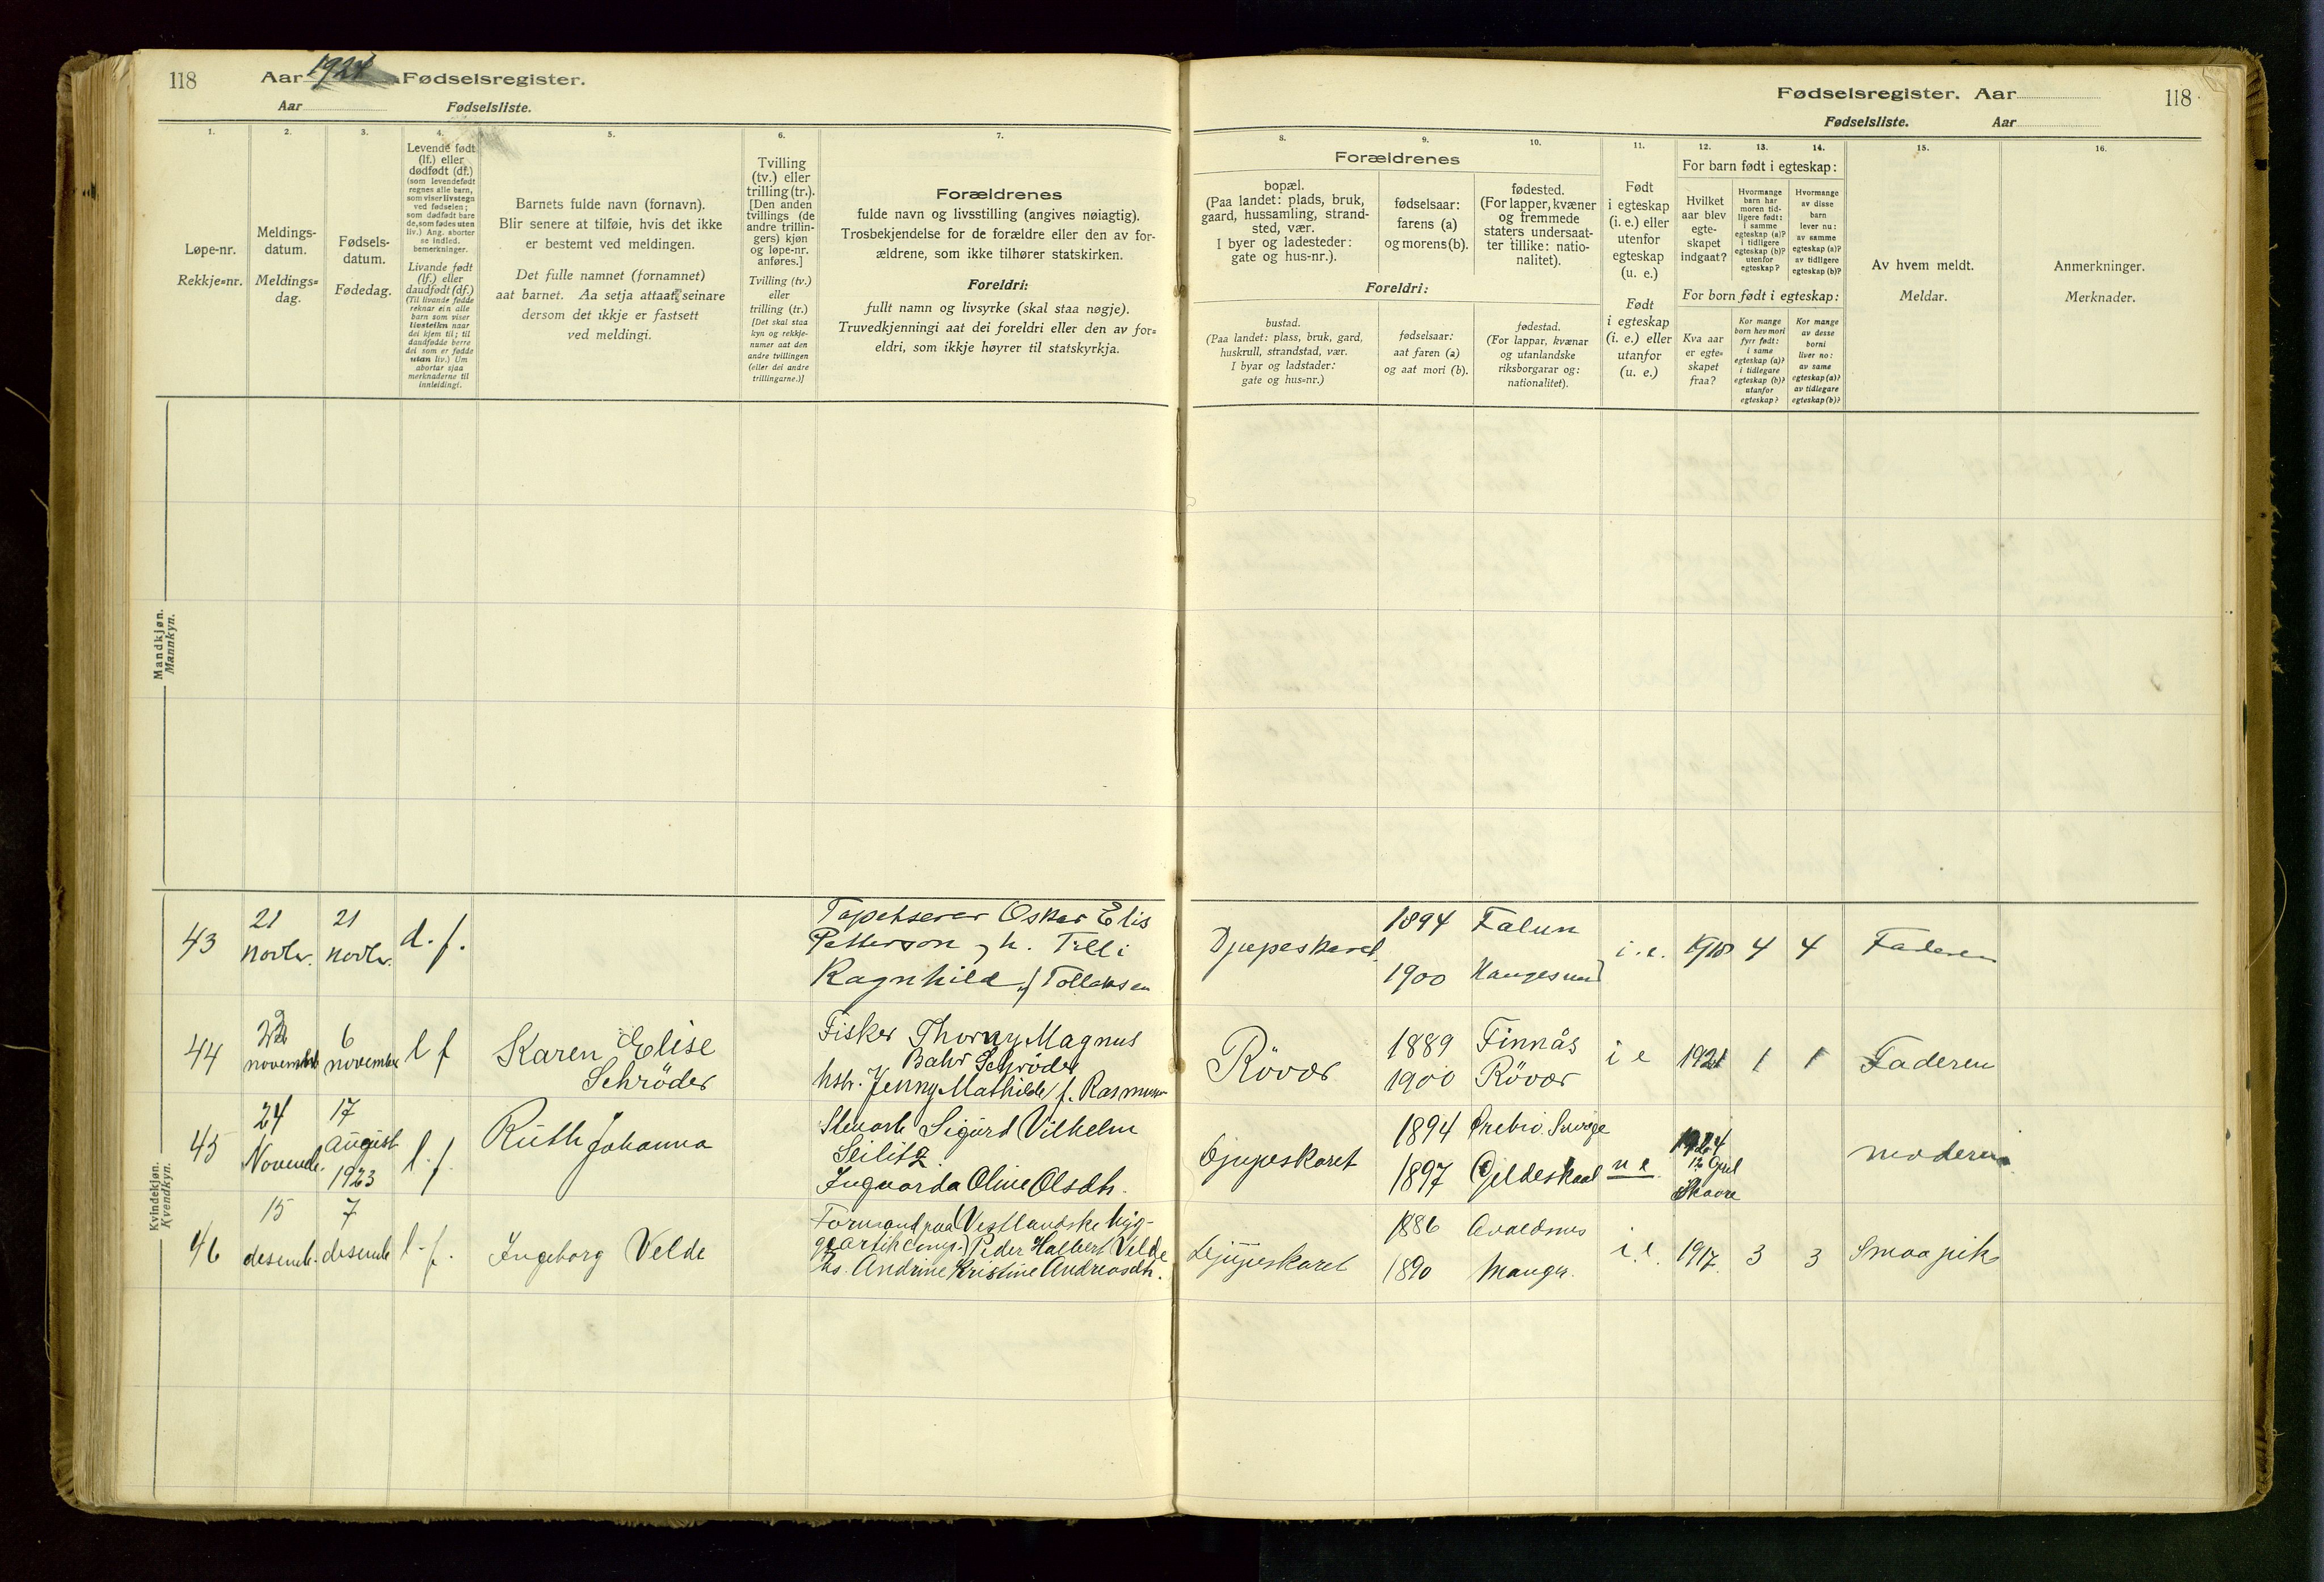 118 Aar 1924 Fødselsregister.
Aar Fødselsliste.
Fødselsregister. Aar 118
Fødselsliste. Aar
1. 2. 3. 4. 5. 6. 7.
Løpe-nr.
Rekkje=nr.
Meldings-
datum.
Meldings=
dag.
Fødsels-
datum.
Fødedag.
Levende født
(lf.) eller
dødfødt (df.)
(som levendefødt
regnes alle barn,
som viser livstegn
ved fødselen;
som dødfødt bare
de, som fødes uten
liv.) Ang. aborter
se indled.
bemerkninger.
Livande født
(lf.) eller
daudfødt (df.)
(Til livande fødde
reknar ein alle
barn som viser
livsteikn naar
dei kjem til; til
daudfødde berre
dei som er fødde
utan liv.) Um
abortar sjaa
merknaderne til
innleidingi.
Barnets fulde navn (fornavn).
Blir senere at tilføie, hvis det ikke
er bestemt ved meldingen.
Det fulle namnet (fornamnet)
aat barnet. Aa setja attaat seinare
dersom det ikkje er fastsett
ved meldingi.
Tvilling
(tv.) eller
trilling (tr.).
[Den anden
tvillings (de
andre trillin-
gers) kjøn
og løpe-nr.
anføres.]
Tvilling (tv.)
eller
trilling (tr.)
[Det skal staa
kyn og rekkje-
numer aat den
andre tvillingen
(eller dei andre
trillingarne.)]
Forældrenes
fulde navn og livsstilling (angives nøiagtig).
Trosbekjendelse for de forældre eller den av for-
ældrene, som ikke tilhører statskirken.
Foreldri:
fullt namn og livsyrke (skal staa nøgje).
Truvedkjenningi aat dei foreldri eller den av for=
eldri, som ikkje høyrer til statskyrkja.
8. 9. 10. 11. 12. 13. 14. 15. 16.
Forældrenes
bopæl.
(Paa landet: plads, bruk,
gaard, hussamling, strand-
sted, vær.
I byer og ladesteder:
gate og hus-nr.).
fødselsaar:
farens (a)
og morens (b).
fødested.
(For lapper, kvæner
og fremmede
staters undersaat-
ter tillike: natio-
nalitet).
Foreldri:
bustad.
(Paa landet: plass, bruk, gard,
huskrull, strandstad, vær.
I byar og ladstader:
gate og hus=nr.)
fødselsaar:
aat faren (a)
og aat mori (b).
fødestad.
(For lappar, kvænar
og utanlandske
riksborgarar og:
nationalitet).
Født
i egteskap
(i. e.) eller
utenfor
egteskap
(u. e.)
Født
i egteskap
(i. e.) eller
utanfor
(u. e.)
For barn født i egteskap:
Hvilket
aar blev
egte-
skapet
indgaat?
Hvormange
barn har
moren tid-
ligere født:
i samme
egteskap (a)?
i tidligere
egteskap (b)?
utenfor
egteskap?
Hvormange
av disse
barn
lever nu:
av samme
egteskap (a)?
av tidligere
egteskap (b)?
For born født i egteskap:
Kva aar
er egte=
skapet
fraa?
Kor mange
born hev mori
fyrr født:
i same
egteskap (a)?
i tidlegare
egteskap (b)?
utanfor
egteskap?
Kor mange
av desse
borni
liver no:
av same
egteskap (a)?
av tidlegare
egteskap (b)?
Av hvem meldt.
Meldar.
Anmerkninger.
Merknader.
Mandkjøn.
Mannkyn.
Kvindekjøn.
Kvendkyn.
43 21 novbr. 21 novbr. d. f.
Tapetserer Oskar Elis
Petterson, h. Tilli
Ragnhild f Tollaksen
Djupeskaret 1894 Falun i. e. 1918 4 4 Faderen
1900 Haugesund
44 22 november 6 november l f Karen Elise
Schröder
Fisker Thorny Magnus
Bahr Schröder
hstr. Jenny Mathilde f. Rasmussen
Rövær 1889 Finnås i e 1921 1 1 Faderen
1900 Rövær
45 24 Novemb. 17 August 1923 l. f. Ruth Johanna
Stuart Sigurd Vilhelm
Seilitz.
Ingvarda Oline Olsdtr.
Djupeskaret 1894 Örebro Sverige u e 1924 moderen
1897 Gildeskaal 12 April
Skaare
46 15 desemb. 7 desemb l. f. Ingeborg Velde
Formand paa (Vestlandske byg-
Peder Halbert Velde
hs. Andrine Kristine Andreasdtr.
Djupeskaret 1886 Avaldsnes i. e. 1917. 3 3
1890 Manger.